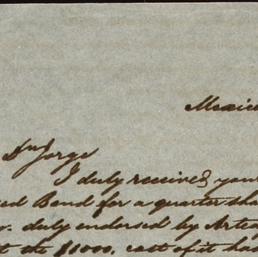 Mexic
Dn Jorge
I duly received your
ed Bond for a quarter sha
duly endorsed by Artea
t the $1000, cost of it has